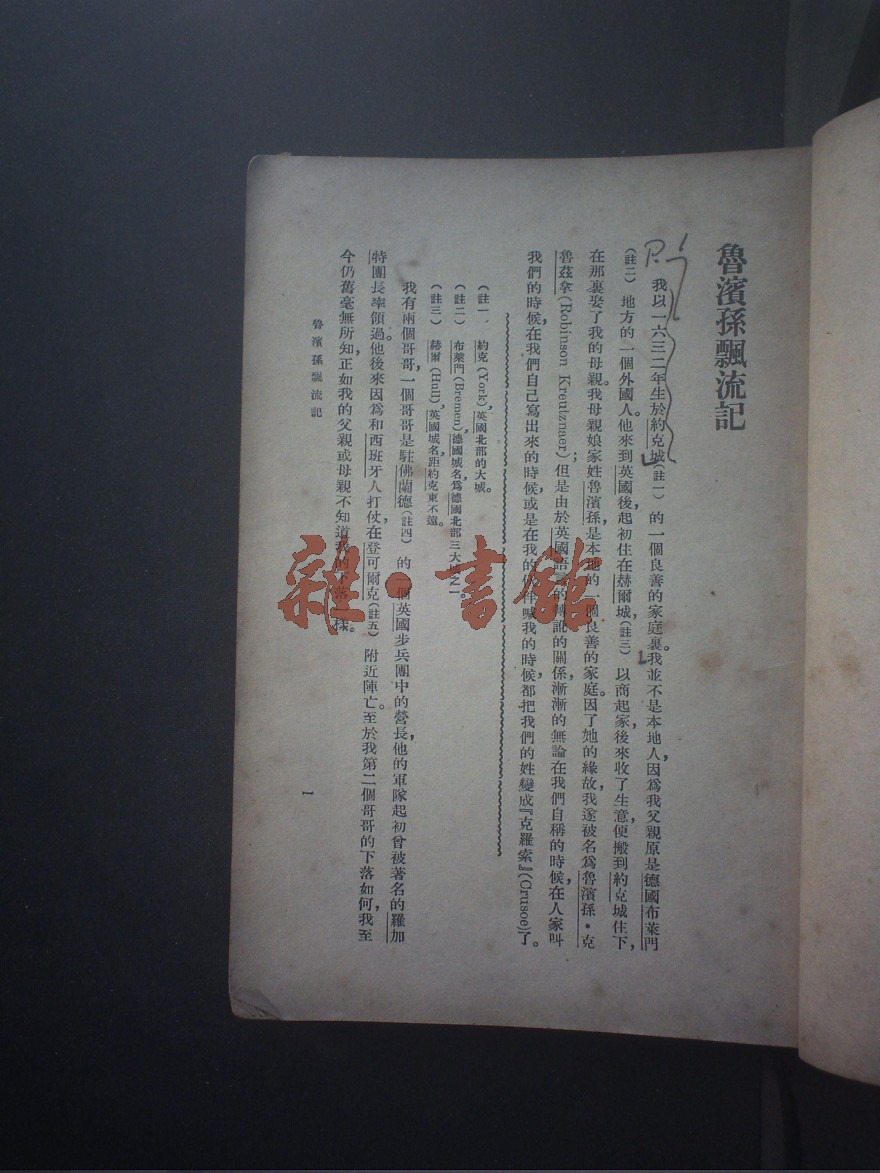 魯濱孫飄流記
我以一六三二年生於約克城(註一)的一個良善的家庭裏。我並不是本地人,因爲我父親原是德國布萊門
(註二)地方的一個外國人。他來到英國後,起初住在赫爾城(註三)以商起家,後來收了生意,便搬到約克城住下,
在那裏娶了我的母親。我母親娘家姓魯濱孫,是本地的一個良善的家庭。因了她的緣故,我遂被名爲魯濱孫·克
魯茲拿(Robinson Kreutznaer);但是由於英國語言的轉訛的關係,漸漸的無論在我們自稱的時候,在人家叫
我們的時候,在我們自己寫出來的時候,或是在我的伙伴喊我的時候,都把我們的姓變成『克羅索』(Crusoe)了。
(註一)約克(York),英國北部的大城。
(註二)布萊門(Bremen),德國城名,爲德國北部三大城之一。
(註三)赫爾(Hull),英國城名,距約克東不遠。
我有兩個哥哥,一個哥哥是駐佛蘭德(註四)的一個英國步兵團中的營長,他的軍隊起初曾被著名的羅加
特團長率領過。他後來因爲和西班牙人打仗,在登可爾克(註五)附近陣亡。至於我第二個哥哥的下落如何,我至
今仍舊毫無所知,正如我的父親或母親不知道我的下落一樣。
魯濱孫飄流記
一
雜·書館